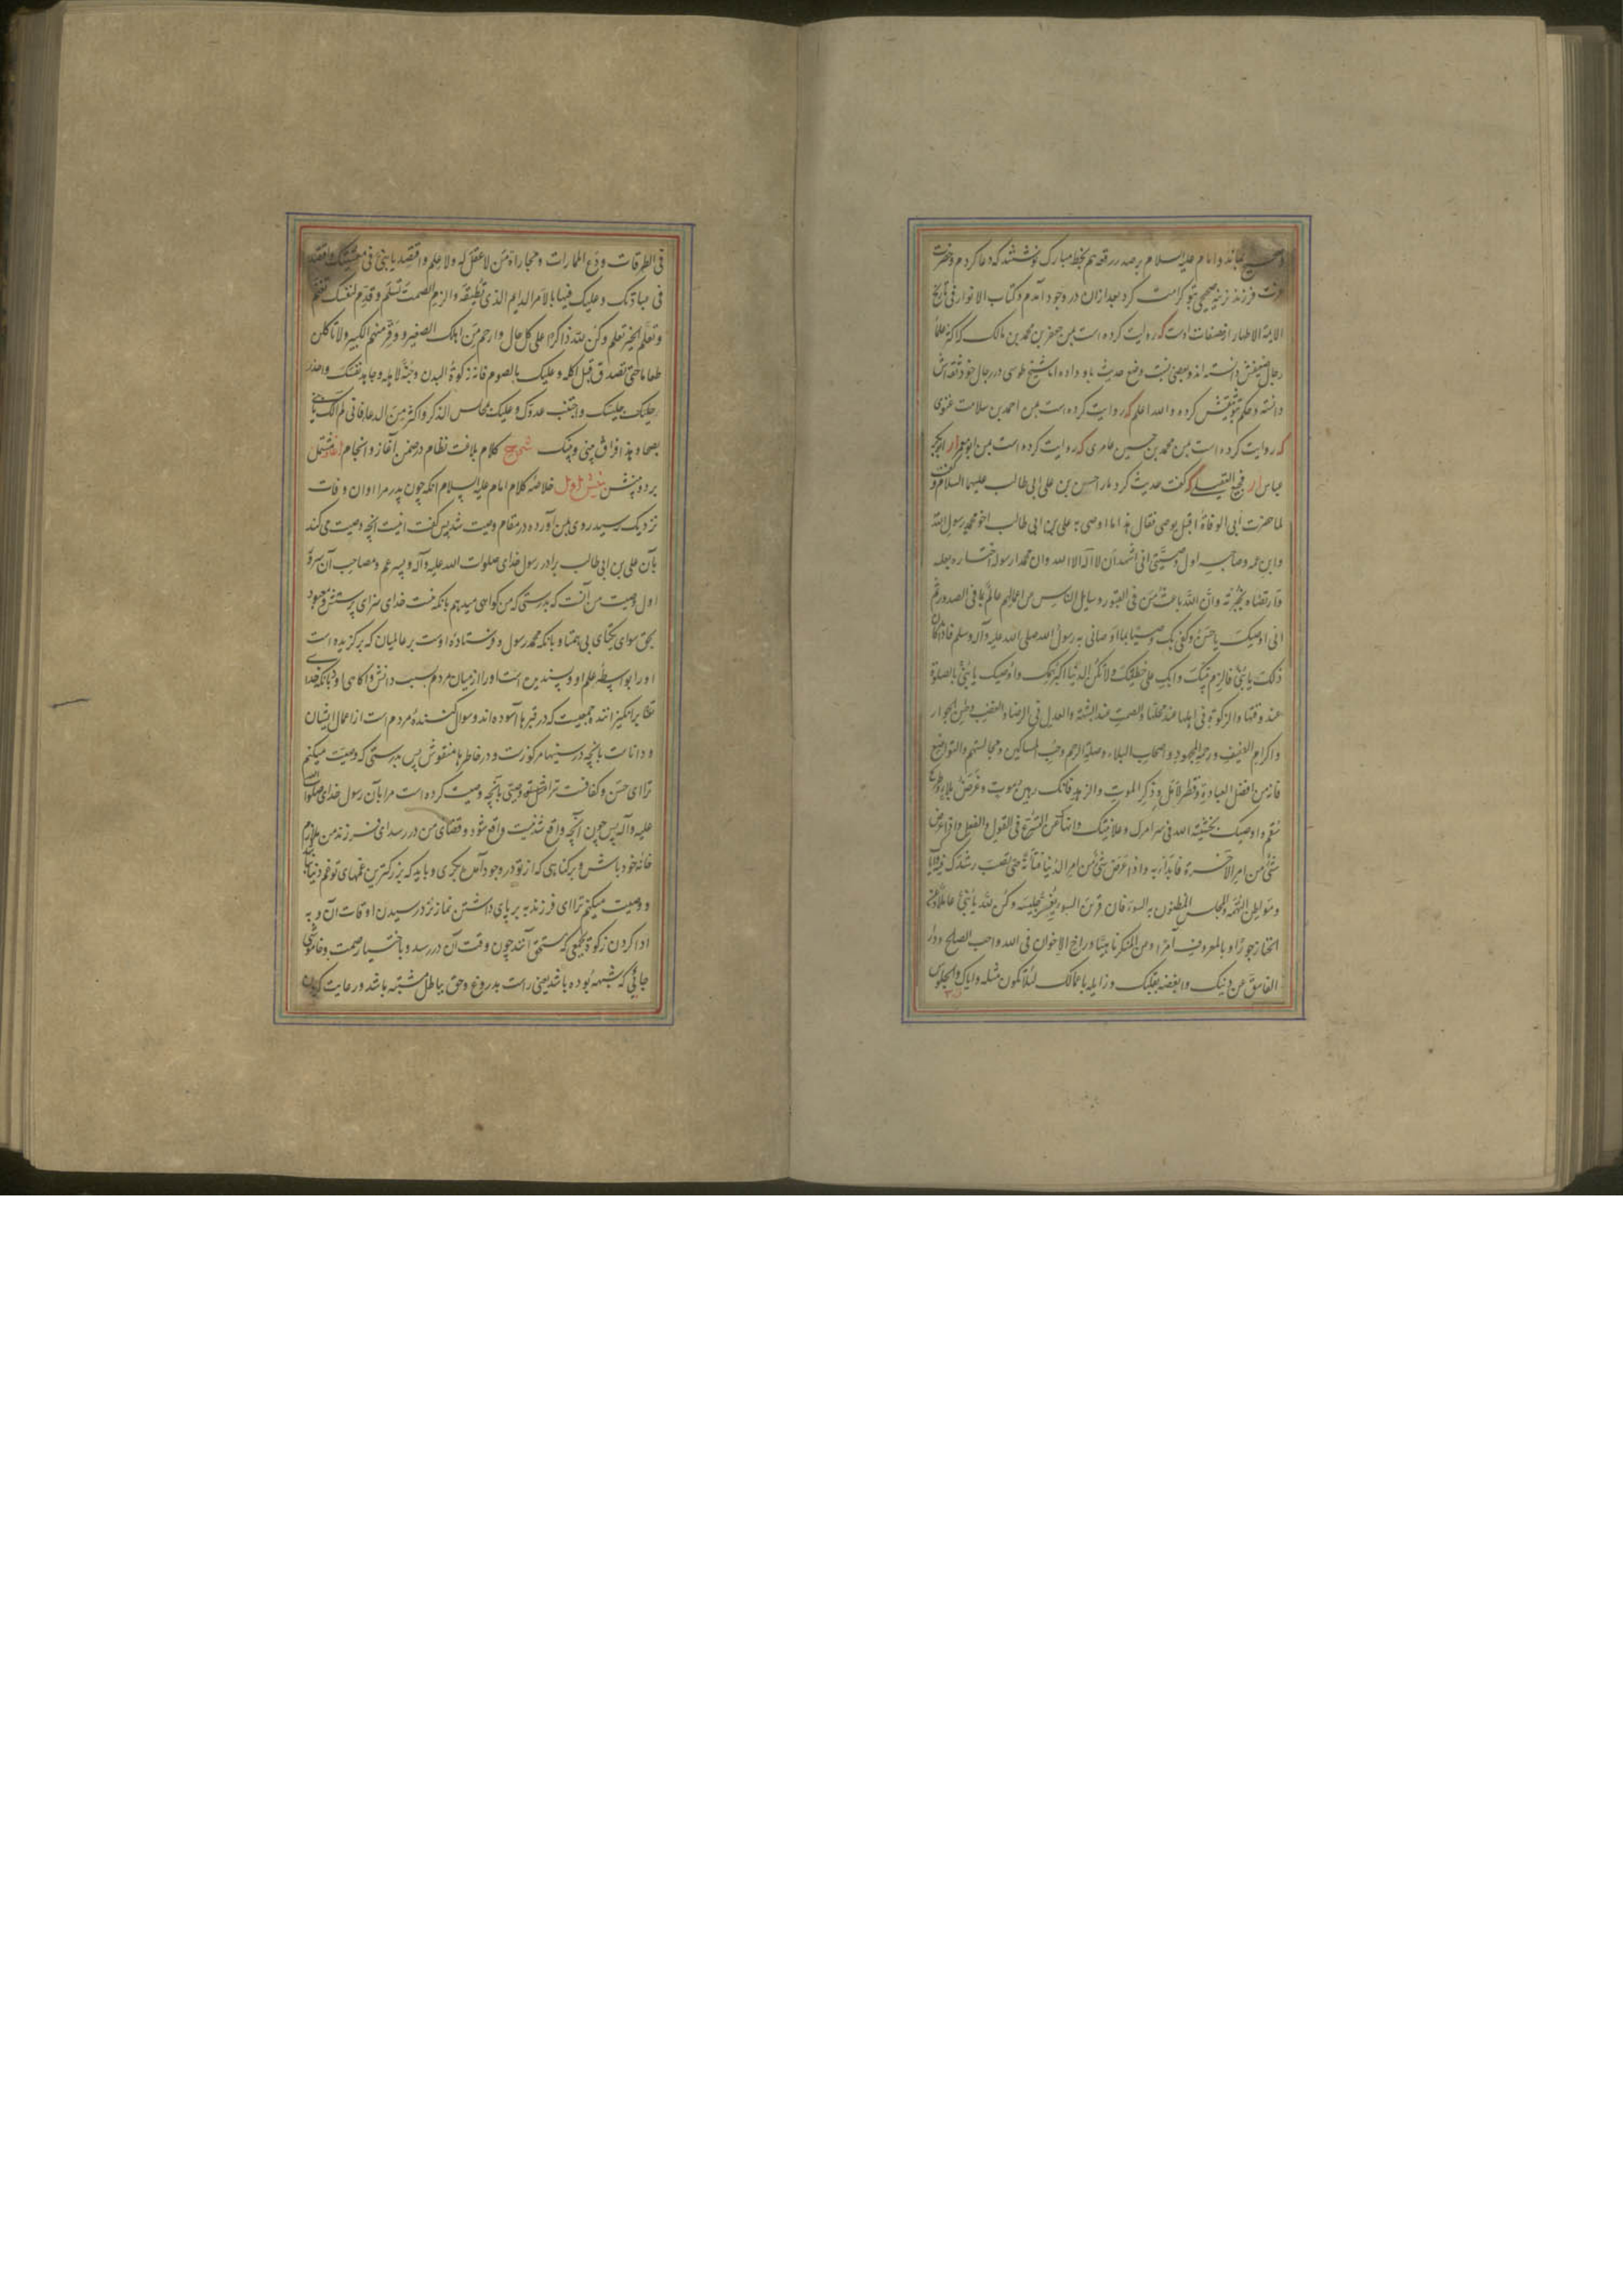 وصحیح بماند و امام علیه السلام بر صدر رقعه هم بخط مبارک نوشتند که دعا کردم و حضرت
عزت فرزند نرینه صحیحی بتو کرامت کرد بعد ازان در وجود آمدم و کتاب الانوار فی تاریخ
الایمة الاطهار از مصنفات اوست که روایت کرده است بمن جعفر بن محمد بن مالک که اکثر علماء
رجال ضعیفش دانسته اند و بعضی نسبت وضع حدیث باو داده اما شیخ طوسی در رجال خود ثقه اش
دانسته و حکم بتوثیقش کرده و الله اعلم که روایت کرده است بمن احمد بن سلامت غنوی
که روایت کرده است بمن محمد بن حسین عامری که روایت کرده است بمن ابو معمر از ابوبکر
عیاش از فجیع العقیلی که گفت حدیث کرد مارا حسن بن علی ابی طالب علیهما السلام و گفت
لما حضرت أبی الوفاة اقبل یوصی فقال هذا ما اوصی به علی بن ابی طالب اخو محمد رسول الله
وابن عمه وصاحبه اول وصیتی انی اشهد أن لا اله الا الله وان محمدا رسوله اختاره بعلمه
وارتضاه بخیرته وانّ الله باعث من فی القبور وسایل الناس عن اعمالهم عالم بما فی الصدور ثم
انی اوصیک یا حسن وکفی بک وصیّا بما اوصانی به رسول الله صلی الله علیه وآله وسلم فاذا کان
ذلک یا بنیّ فالزم بیتک وابک علی خطیئتک ولا تکن الدنیا اکبر همک واوصیک یا بنیّ بالصلوة
عند وقتها والزکوة فی اهلها عند محلها والصمت عند الشبهة والعدل فی الرضاء والغضب وحسن الجوار
واکرام الضیف ورحمة المجهود واصحاب البلاء وصلة الرحم وحب المساکین ومجالستهم والتواضع
فانه من افضل العبادة وقصر الامل وذکر الموت والزهد فانک رهین موت وغرض بلاء وطریح
سقم واوصیک بخشیة الله فی سر امرک وعلانیتک وانهاک عن التسرع فی القول والفعل واذا عرض
شیء من امر الآخرة فابدأ به واذا عرض شیء من امر الدنیا فتأنّه حتی تصیب رشدک فیه وایاک
ومواطن التهمه والمجلس المظنون به السوء فان قرین السوء یغیّر جلیسه وکن لله یا بنیّ عاملا وعن
الخنا زجورا وبالمعروف آمرا وعن المنکر ناهیا وواخ الاخوان فی الله واحب الصالح ودار
الفاسق عن دینک وابغضه بقلبک وزایله باعمالک لئلا تکون مثله وایاک والجلوس
فی الطرقات ودع الممارات ومجاراة من لا عقل له ولا علم واقتصد یا بنیّ فی معیشتک واقتصد
فی عبادتک وعلیک فیها بالامر الدایم الذی تطیقه والزم الصمت تسلم وقدّم لنفسک تغنم
وتعلّم الخیر تعلم وکن لله ذاکرا علی کل حال وارحم من اهلک الصغیر ووقّر منهم الکبیر ولا تاکلن
طعاما حتی تصدق قبل اکله وعلیک بالصوم فانه زکوة البدن وجنّة لاهله وجاهد نفسک واحذر
جلیسک واجتنب عدوک وعلیک بمجالس الذکر واکثر من الدعاء فانی لم آلک یا بنی
نصحا وهذا فراق بینی وبینک شرح کلام بلاغت نظام در ضمن آغاز و انجام مشتمل
بر دو بخش بخش اول خلاصه کلام امام علیه السلام انکه چون پدر مرا اوان وفات
نزدیک رسید روی بمن آورده در مقام وصیت شد پس گفت اینست انچه وصیت می کند
بآن علی بن ابی طالب برادر رسول خدای صلوات الله علیه وآله و پسر عم و مصاحب آن سرور
اول وصیت من آنست که بدرستی که من گواهی میدهم بانکه نیست خدای سزای پرستش و معبود
بحق سوای یکتای بی همتا و بانکه محمد رسول و فرستاده اوست بر عالمیان که برگزیده است
او را بواسطه علم او و پسندیده است او را از میان مردم بسبب دانش و آکاهی او و بانکه خدای
تعالی برانگیزانند جمعیست که در قبرها آسوده اند و سوال کننده مردم است از اعمال ایشان
و داناست بانچه در سینها مرکوزست و در خاطرها منقوش پس بدرستی که وصیت میکنم
ترا ای حسن و کفافست ترا وصیتی بآنچه وصیت کرده است مرا بآن رسول خدای صلوات الله
علیه وآله پس چون آنچه واقع شدنیست واقع شود و قضای من در رسد ای فرزند من ملازم
خانه خود باش و بر گناهی که از تو در وجود آمده بگری و باید که بزرگترین غمهای تو غم دنیا نباشد
و وصیت میکنم ترا ای فرزند به برپای داشتن نماز نزد رسیدن اوقات آن و به
ادا کردن زکوة بجمعی که مستحق آنند چون وقت آن در رسد و باختیار صمت و خاموشی
جائی که شبهه بوده باشد یعنی راست بدروغ و حق بباطل مشتبه باشد و رعایت کردن